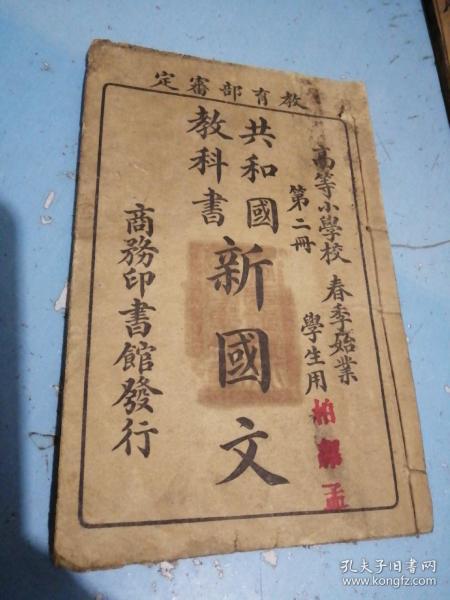 教育部審定
高等小學校 春季始業
第二冊 學生用
共和國
教科書
新國文
商務印書館發行
柏
孟
孔夫子旧书网
www.kongfz.com